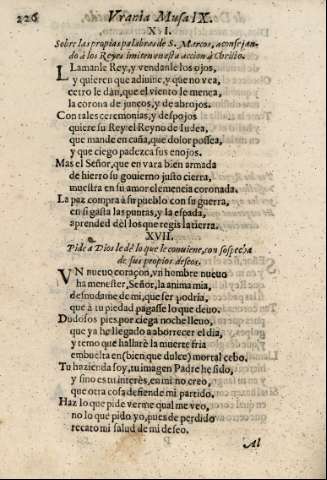 226
Vrania Musa IX.
XVI.
Sobre las propias palabras de S. Marcos, aconsejan-
do à los Reyes imiten en esta accion à Christo.
LLamanle Rey, y vendanle los ojos,
y quieren que adiuine, y que no vea,
cetro le dan, que el viento le menea,
la corona de juncos, y de abrojos.
Con tales ceremonias, y despojos
quiere su Rey el Reyno de Iudea,
que mande en caña, que dolor possea,
y que ciego padezca sus enojos.
Mas el Señor, que en vara bien armada
de hierro su gouierno justo cierra,
muestra en su amor clemencia coronada.
La paz compra à su pueblo con su guerra,
en si gasta las puntas, y la espada,
aprended dèl los que regis la tierra.
XVII.
Pide à Dios le dè lo que le conuiene, con sospecha
de sus propios deseos.
VN nueuo coraçon, vn hombre nueuo
ha menester, Señor, la anima mia,
desnudame de mi, que ser podria,
que à tu piedad pagasse lo que deuo.
Dudosos pies por ciega noche lleuo,
que ya he llegado a aborrecer el dia,
y temo que hallarè la muerte fria
embuelta en (bien que dulce) mortal cebo.
Tu hazienda soy, tu imagen Padre he sido,
y sino es tu interès, en mi no creo,
que otra cosa defiende mi partido.
Haz lo que pide verme qual me veo,
no lo que pido yo, pues de perdido
recato mi salud de mi deseo.
Al